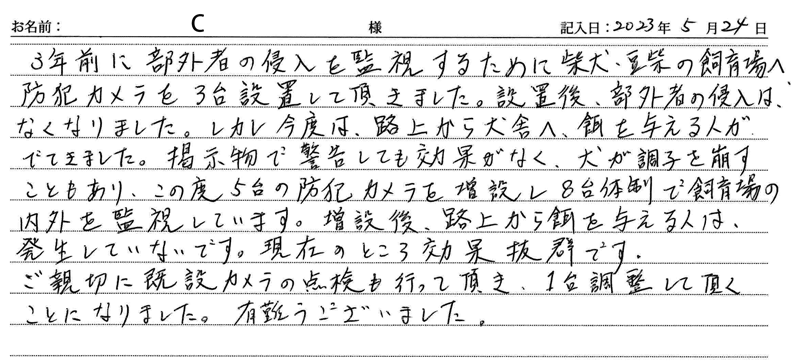 お名前： C 様 記入日：2023年 5月24日
3年前に部外者の侵入を監視するために柴犬・豆柴の飼育場へ
防犯カメラを3台設置して頂きました。設置後、部外者の侵入は、
なくなりました。しかし今度は、路上から犬舎へ、餌を与える人が
でてきました。掲示物で警告しても効果がなく、犬が調子を崩す
こともあり、この度5台の防犯カメラを増設し8台体制で飼育場の
内外を監視しています。増設後、路上から餌を与える人は、
発生していないです。現在のところ効果抜群です。
ご親切に既設カメラの点検も行って頂き、1台調整して頂く
ことになりました。有難うございました。